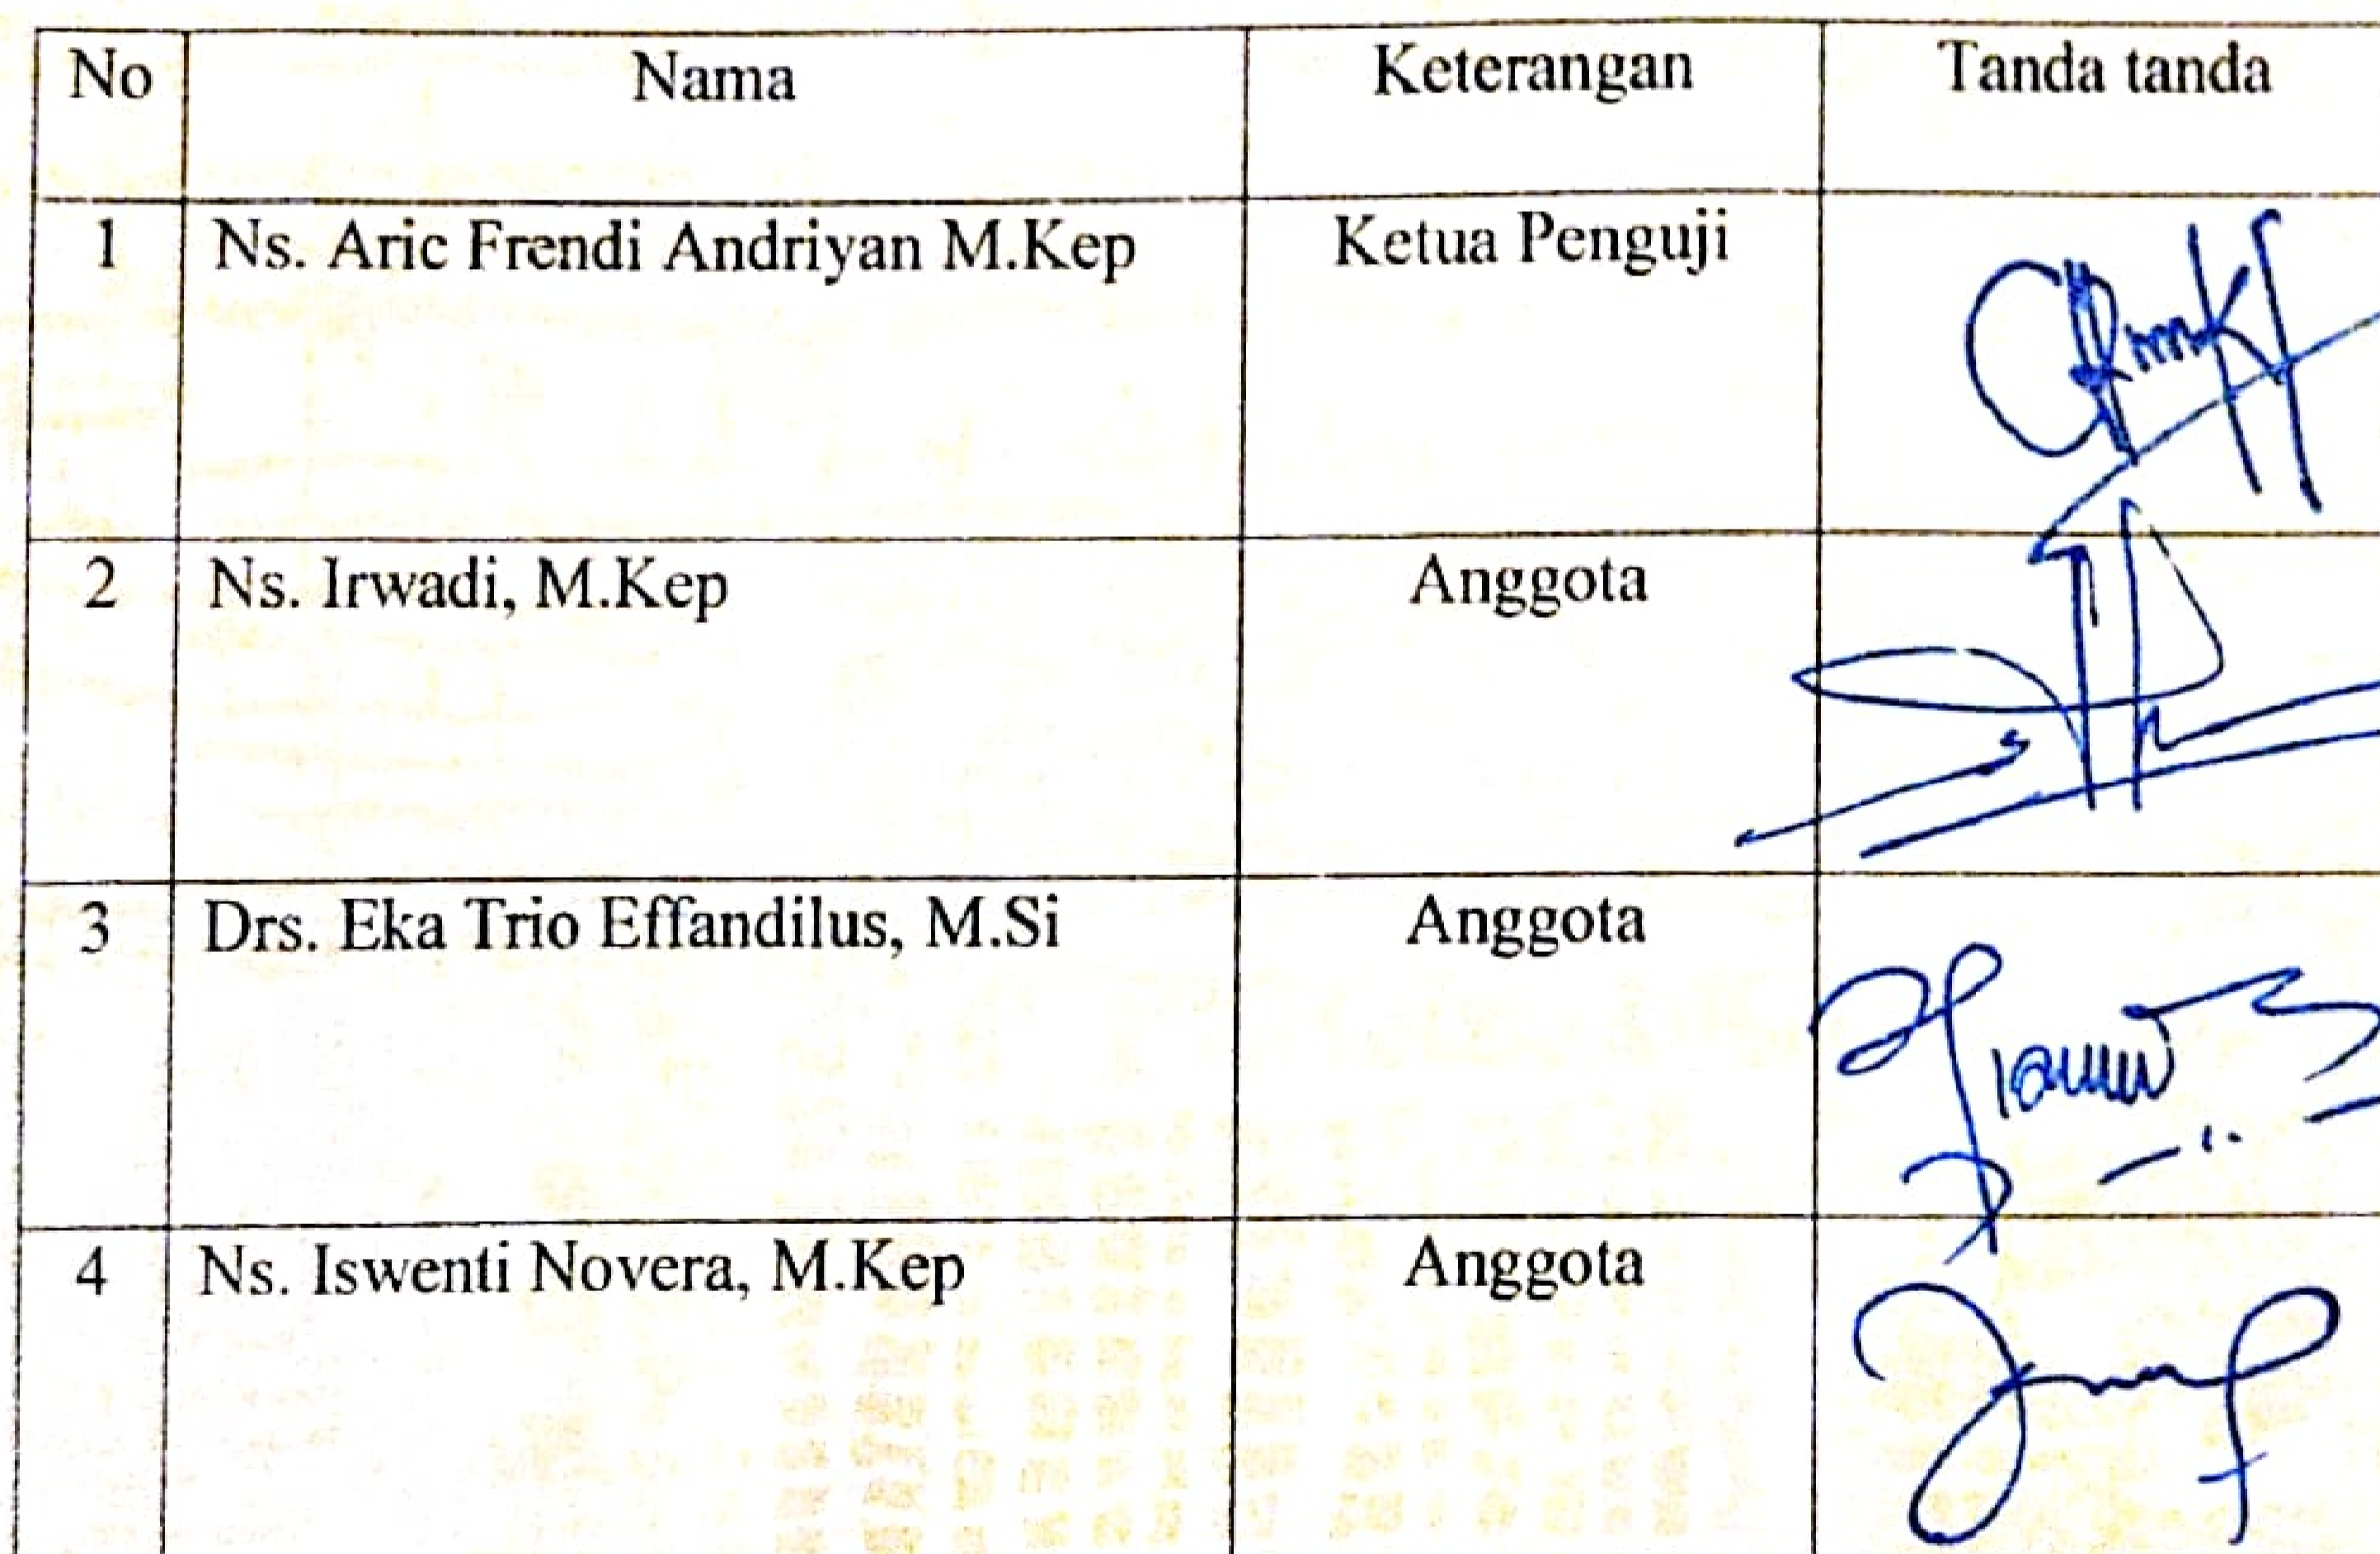 No Nama Keterangan Tanda tanda
1 Ns. Aric Frendi Andriyan M.Kep Ketua Penguji
2 Ns. Irwadi, M.Kep Anggota
3 Drs. Eka Trio Effandilus, M.Si Anggota
4 Ns. Iswenti Novera, M.Kep Anggota